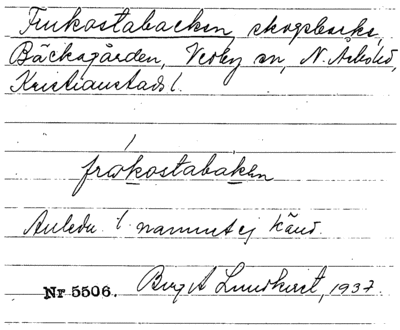 Frukostabacken, skogsbacke,
Bäckagården, Verby sn, N. Åsbo hd,
Kristianstads l.
frokostabakan
Anledn. t. namnet ej känd.
Nr 5506. Birgit Lundkvist, 1937.